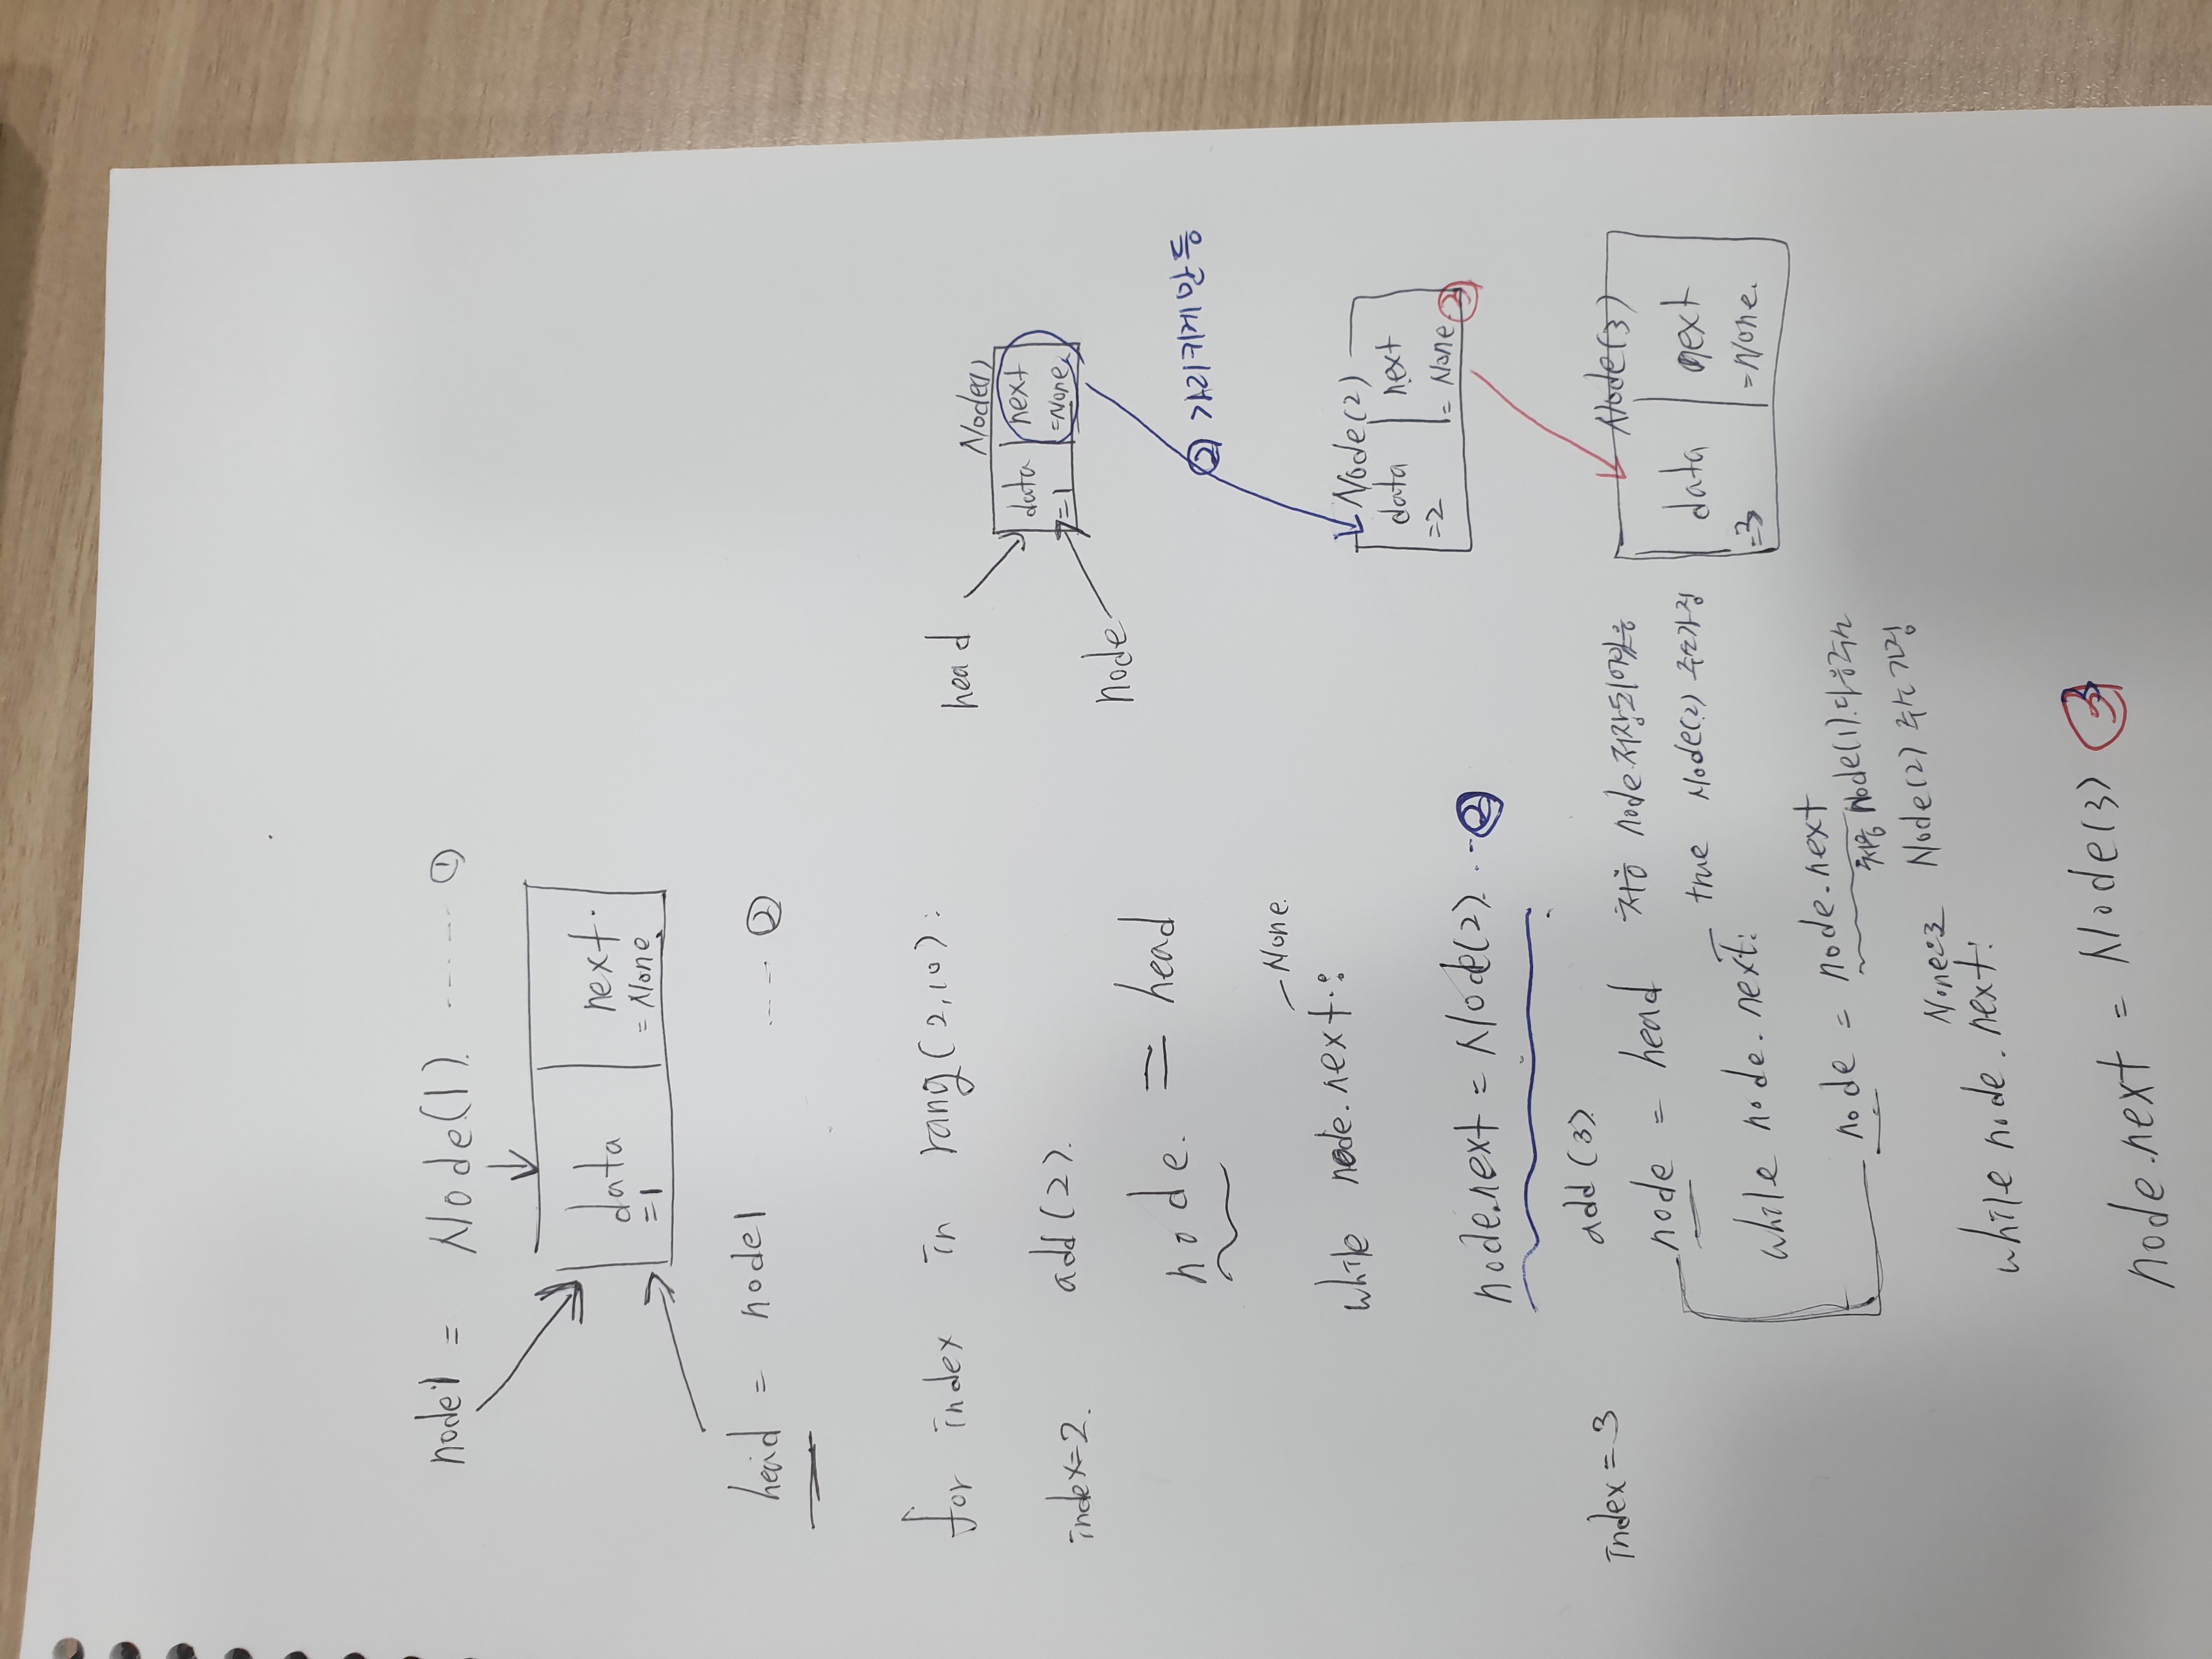 node1 = Node(1) ------ ①
data
=1
next
= None
head = node1 ---- ②
for index in rang(2,10):
index=2. add(2)
node = head
None
while node.next:
node.next = Node(2) --②
index=3 add(3)
node = head 처음 node 저장되어있음
true Node(2) 주소가정
while node.next:
node = node.next
처음 Node(1).다음주소
None으로 Node(2) 주소가정
while node.next:
node.next = Node(3) ③
head
Node(1)
data
=1
next
=None
node
② 가리키게 만듬
Node(2)
data
=2
next
= None ③
Node(3)
data
=3
next
=None.